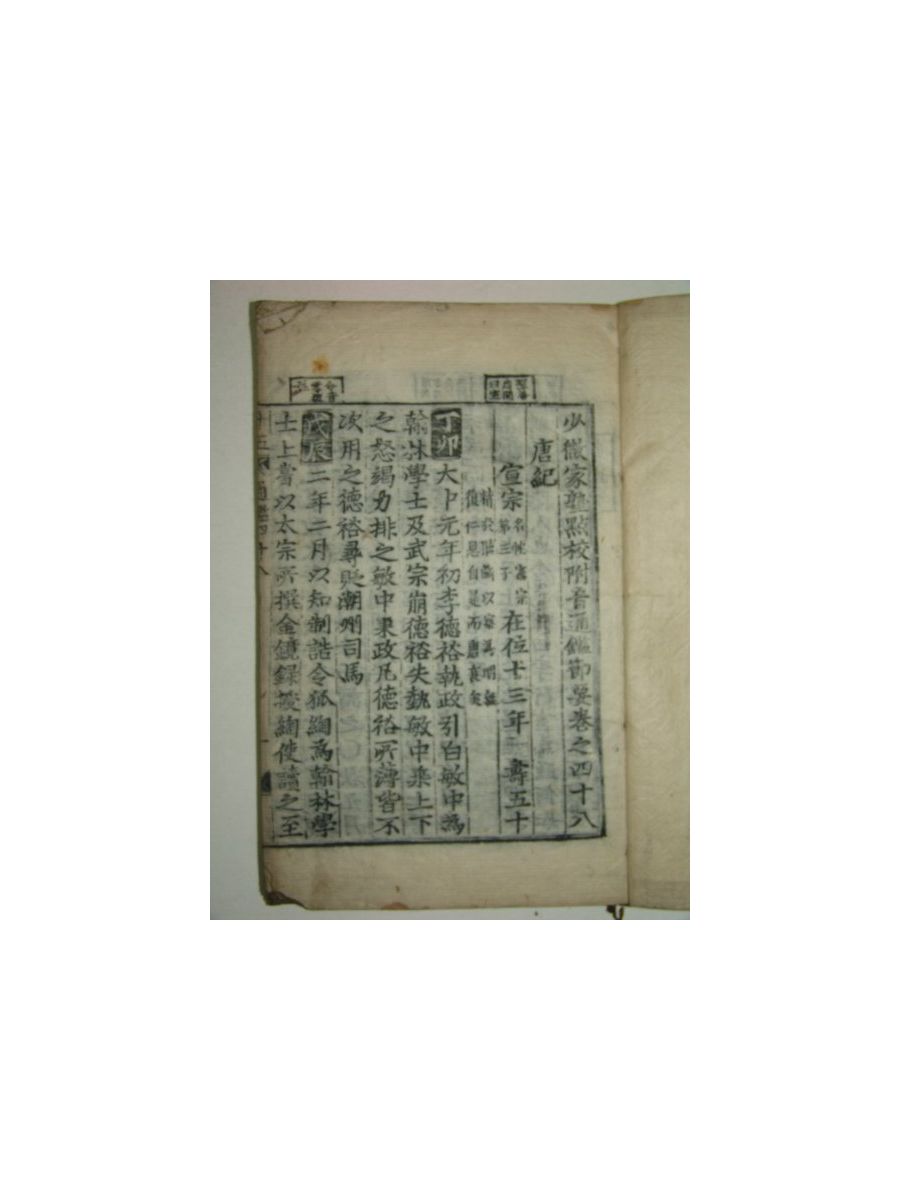 少微家塾點校附音通鑑節要卷之四十八
唐紀
宣宗 名忱憲宗第十三子 在位十三年 壽五十
精於聽斷以察為明無復仁恩自是而唐衰矣
丁卯 大中元年初李德裕執政引白敏中為
翰林學士及武宗崩德裕失勢敏中乘上下
之怒竭力排之敏中秉政凡德裕所薄皆不
次用之德裕尋貶潮州司馬
戊辰 二年二月以知制誥令狐綯為翰林學
士上嘗以太宗所撰金鏡錄授綯使讀之至